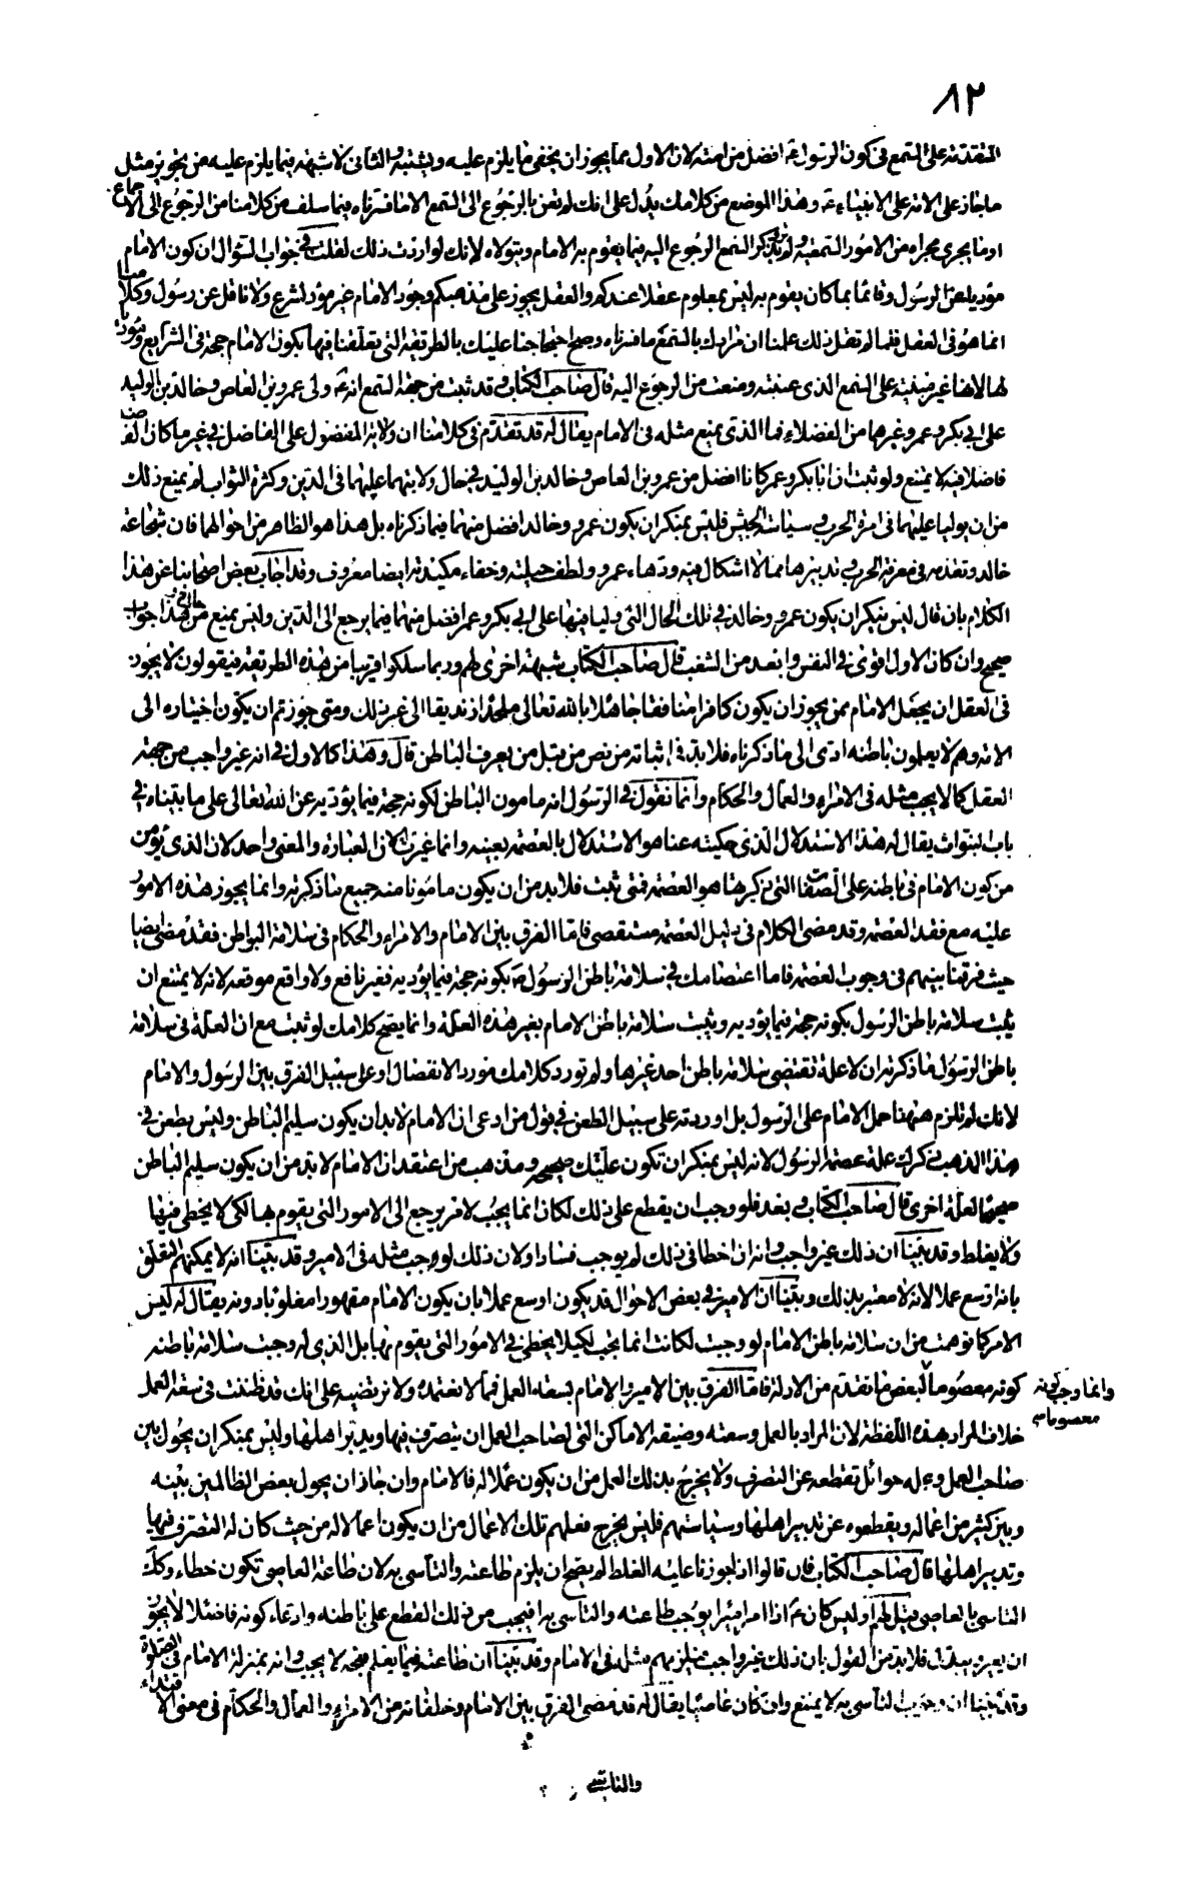 ٨٢
المتقدمة على السمع في كون الرسول عم افضل من امته لان الاول مما يجوز ان يخفى ما يلزم عليه ويشتبه والثاني لا شبهة فيما يلزم عليه من تجويز مثل
ما جاز على الامة على الانبياء عم وهذا الموضع من كلامك يدل على انك لم تعن بالرجوع الى السمع الا ما فسرناه فيما سلف من كلامنا من الرجوع الى الاجماع
او ما يجري مجراه من الامور السمعية ولم تذكر السمع الرجوع اليه فيما يقوم به الامام ويتولاه لانك لو اردت ذلك لقلت في جواب السؤال ان كون الامام
مؤديا عن الرسول وقائما بما كان يقوم به ليس بمعلوم عقلا عندكم والعقل يجوز على مذهبكم وجود الامام غير مؤد لشرع ولا ناقل عن رسول وكلامنا
انما هو في العقل فلما لم تقل ذلك علمنا ان مرادك بالسمع ما فسرناه وصح احتجاجنا عليك بالطريقة التي تعلقنا فيها بكون الامام حجة في الشرايع ومؤديا
لها لانها غير مبنية على السمع الذي عنيته ومنعت من الرجوع اليه قال صاحب الكتاب وقد ثبت من جهة السمع انه عم ولى عمرو بن العاص وخالد بن الوليد
على ابي بكر وعمر وغيرهما من الفضلاء فما الذي يمنع مثله في الامام يقال له قد تقدم في كلامنا ان ولاية المفضول على الفاضل في غير ما كان الفاضل
فاضلا فيه لا يمتنع ولو ثبت ان ابا بكر وعمر كانا افضل من عمرو بن العاص وخالد بن الوليد في حال ولايتهما عليهما في الدين وكثرة الثواب لم يمنع ذلك
من ان يوليا عليهما في امرة الحرب وسياسة الجيش فليس بمنكر ان يكون عمرو وخالد افضل منهما فيما ذكرناه بل هذا هو الظاهر من احوالهما فان شجاعة
خالد وتقدمه في معرفة الحرب وتدبيرها مما لا اشكال فيه ودهاء عمرو ولطف حيلته وخفاء مكيدته ايضا معروف وقد اجاب بعض اصحابنا عن هذا
الكلام بان قال ليس بمنكر ان يكون عمرو وخالد في تلك الحال التي وليا فيها على ابي بكر وعمر افضل منهما فيما يرجع الى الدين وليس يمنع من هذا وهذا جواب
صحيح وان كان الاول اقوى في النفس وابعد من الشغب قال صاحب الكتاب شبهة اخرى لهم وربما سلكوا قريبا من هذه الطريقة فيقولون لا يجوز
في العقل ان يجعل الامام ممن يجوز ان يكون كافرا منافقا جاهلا بالله تعالى ملحدا زنديقا الى غير ذلك ومتى جوزتم ان يكون اختياره الى
الامة وهم لا يعلمون باطنه ادى الى ما ذكرناه فلا بد في اثباته من نص من قبل من يعرف الباطن قال وهذا كالاول في انه غير واجب من جهة
العقل كما لا يجب مثله في الامراء والعمال والحكام وانما نقول في الرسول انه مامون الباطن لكونه حجة فيما يؤديه عن الله تعالى على ما بيناه في
باب النبوات يقال له هذا الاستدلال الذي حكيته عنا هو الاستدلال بالعصمة بعينه وانما غيرت العبارة والمعنى واحد لان الذي يؤمن
من كون الامام في باطنه على الصفات التي ذكرها هو العصمة فمتى ثبت فلا بد من ان يكون مامونا منه جميع ما ذكرته وانما يجوز هذه الامور
عليه مع فقد العصمة وقد مضى الكلام في دليل العصمة مستقصى فاما الفرق بين الامام والامراء والحكام في سلامة البواطن فقد مضى ايضا
حيث فرقنا بينهم في وجوب العصمة فاما اعتصامك في سلامة باطن الرسول عم بكونه حجة فيما يؤديه فغير نافع ولا واقع موقعه لانه لا يمتنع ان
يثبت سلامة باطن الرسول بكونه حجة فيما يؤديه ويثبت سلامة باطن الامام بغير هذه العلة وانما يصح كلامك لو ثبت مع ان العلة في سلامة
باطن الرسول ما ذكرته ان لا علة تقتضي سلامة باطن احد غيرها ولم تورد كلامك مورد الانفصال او على سبيل الفرق بين الرسول والامام
لانك لم تلزم ههنا حمل الامام على الرسول بل اوردته على سبيل الطعن في قول من ادعى ان الامام لا بد ان يكون سليم الباطن وليس يطعن في
هذا المذهب ذكرك علة عصمة الرسول لانه ليس بمنكر ان تكون علتك صحيحة ومذهب من اعتقد ان الامام لا بد من ان يكون سليم الباطن
صحيحا لعلة اخرى قال صاحب الكتاب وبعد فلو وجب ان يقطع على ذلك لكان انما يجب لامر يرجع الى الامور التي يقوم بها لكي لا يخطئ فيها
ولا يغلط وقد بينا ان ذلك غير واجب وانه ان اخطا في ذلك لم يوجب فسادا ولان ذلك لو وجب لوجب مثله في الامير وقد بينا انه لا يمكنهم التعلق
بانه اوسع عملا لانه لا معتبر بذلك وبينا ان الامير في بعض الاحوال قد يكون اوسع عملا بان يكون الامام مقهورا مغلوبا دونه يقال له ليس
الامر كما توهمت من ان سلامة باطن الامام لو وجبت لكانت انما تجب لكيلا يخطئ في الامور التي يقوم بها بل الذي له وجبت سلامة باطنه
كونه معصوما لبعض ما تقدم من الادلة فاما الفرق بين الامير والامام بسعة العمل فما لا نعتمده ولا نرتضيه على انك قد ظننت في سعة العمل
وانما وجب كونه معصوما
خلاف المراد بهذه اللفظة لان المراد بالعمل وسعته وضيقه الاماكن التي لصاحب العمل ان يتصرف فيها ويدبر اهلها وليس بمنكر ان يحول بين
صاحب العمل وعمله حوائل تقطعه عن التصرف ولا يخرج بذلك العمل من ان يكون عملا له فالامام وان جاز ان يحول بعض الظالمين بينه
وبين كثير من اعماله ويقطعوه عن تدبير اهلها وسياستهم فليس يخرج فعلهم تلك الاعمال من ان يكون اعمالا له من حيث كان له التصرف فيها
وتدبير اهلها قال صاحب الكتاب فان قالوا اذا جوزنا عليه الغلط لم يصح ان يلزم طاعته والتاسي به لان طاعة العاصي تكون خطاء وكذا
التاسي بالعاصي قيل لهم اوليس كان عم اذا امر اميرا يوجب طاعته والتاسي به افيجب من ذلك القطع على باطنه وادعاء كونه فاضلا لا يجوز
ان يعزل ويبدل فلا بد من القول بان ذلك غير واجب فيلزمهم مثله في الامام وقد بينا ان طاعته فيما يعلم قبحه لا يجب وانه بمنزلة الامام في الصلوة
وقد بينا ان وجوب التاسي به لا يمتنع وان كان عاصيا يقال له قد مضى الفرق بين الامام وخلفائه من الامراء والعمال والحكام في معنى الاقتداء
والتاسي